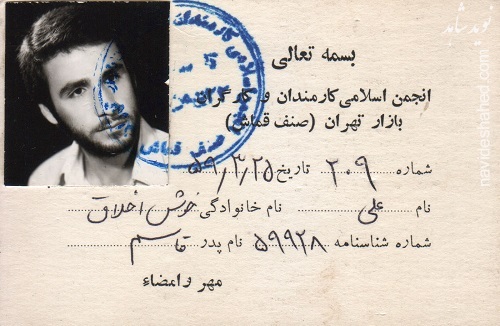 بسمه تعالی
انجمن اسلامی کارمندان و کارگران
بازار تهران (صنف قماش)
شماره ۲۰۹ تاریخ ۵۹/۳/۲۵
نام علی نام خانوادگی خوش اخلاق
شماره شناسنامه ۵۹۹۲۸ نام پدر قاسم
مهر و امضاء
اسلامی کارمندان
صنف قماش
نوید شاهد
navideshahed.com